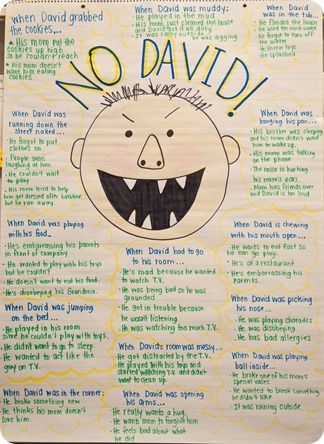 When David grabbed
the cookies...
• His mom put the
cookies up high
so he couldn't reach
• His mom doesn't
want him eating
cookies
When David was muddy:
• He played in the mud
• His mom just cleaned the house
and David got it all dirty
• It was rainy outside
he was digging
When David
was in the tub...
• He flooded the
house
• He used too much water
• He forgot to turn off
the water
• He threw toys
• He splashed
NO DAVID!
When David was
running down the
street naked...
• He forgot to put
clothes on
• People were
laughing at him
• He couldn't wait
to play
• His mom tried to help
him get dressed after bathtime,
but he ran away.
When David was
banging his pan...
• His brother was sleeping
and his mom didn't want
him to wake up.
• His mom was talking
on the phone
• The noise is hurting
his mom's ears.
• Mom has friends over
and David is too loud
When David was playing
with his food...
• He's embarrassing his parents
in front of company
• He wanted to play with his toys
but he couldn't
• He doesn't want to eat his food.
• He's disobeying his Grandma.
When David had to
go to his room...
• He's mad because he wanted
to watch T.V.
• He was being bad so he was
grounded
• He got in trouble because
he wasn't listening
• He was watching too much T.V.
When David is chewing
with his mouth open...
• He wants to eat fast so
he can go play.
• He's at a restaurant
• He's embarrassing his
parents.
When David was jumping
on the bed...
• He played in his room
since he couldn't play with toys.
• He didn't want to go to sleep
• He wanted to act like the
guy on T.V.
When David's room was messy...
• He got distracted by the T.V.
• He played with his toys and
started watching T.V. and didn't
want to clean up.
When David was picking his
nose...
• He was playing charades
• He was disobeying
• He has bad allergies
When David was playing
ball inside...
• He broke one of his mom's
special vases
• He wanted to break something
he didn't like
• It was raining outside.
When David was in the corner:
• He broke something new
• He thinks his mom doesn't
love him.
When David was opening
his arms...
• He really wants a hug.
• He want mom to forgive him
• He feels bad about what
he did